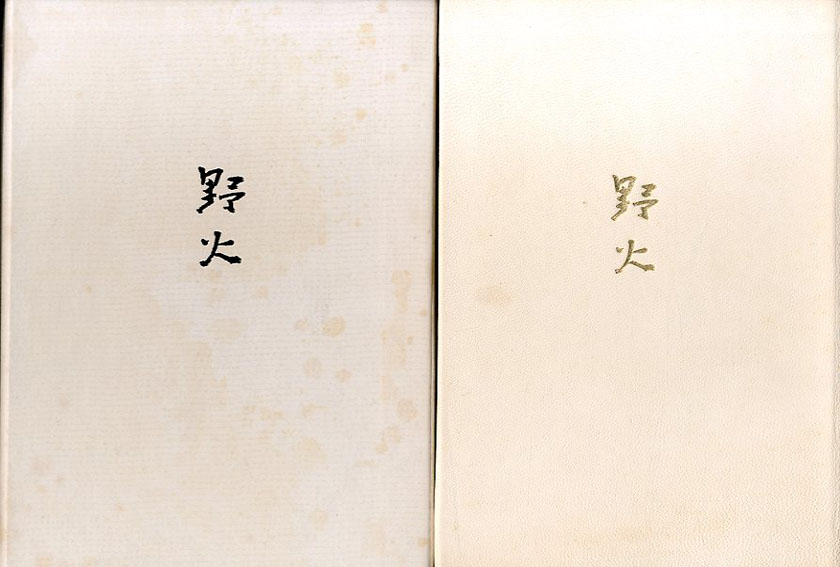 野火
野火